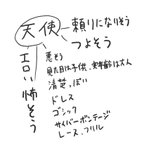 天使
頼りになりそう
つよそう
エロい怖そう
悪そう
見た目は子供、実年齢は大人
清楚っぽい
ドレス
ゴシック
サイバーボンテージ
レース、フリル